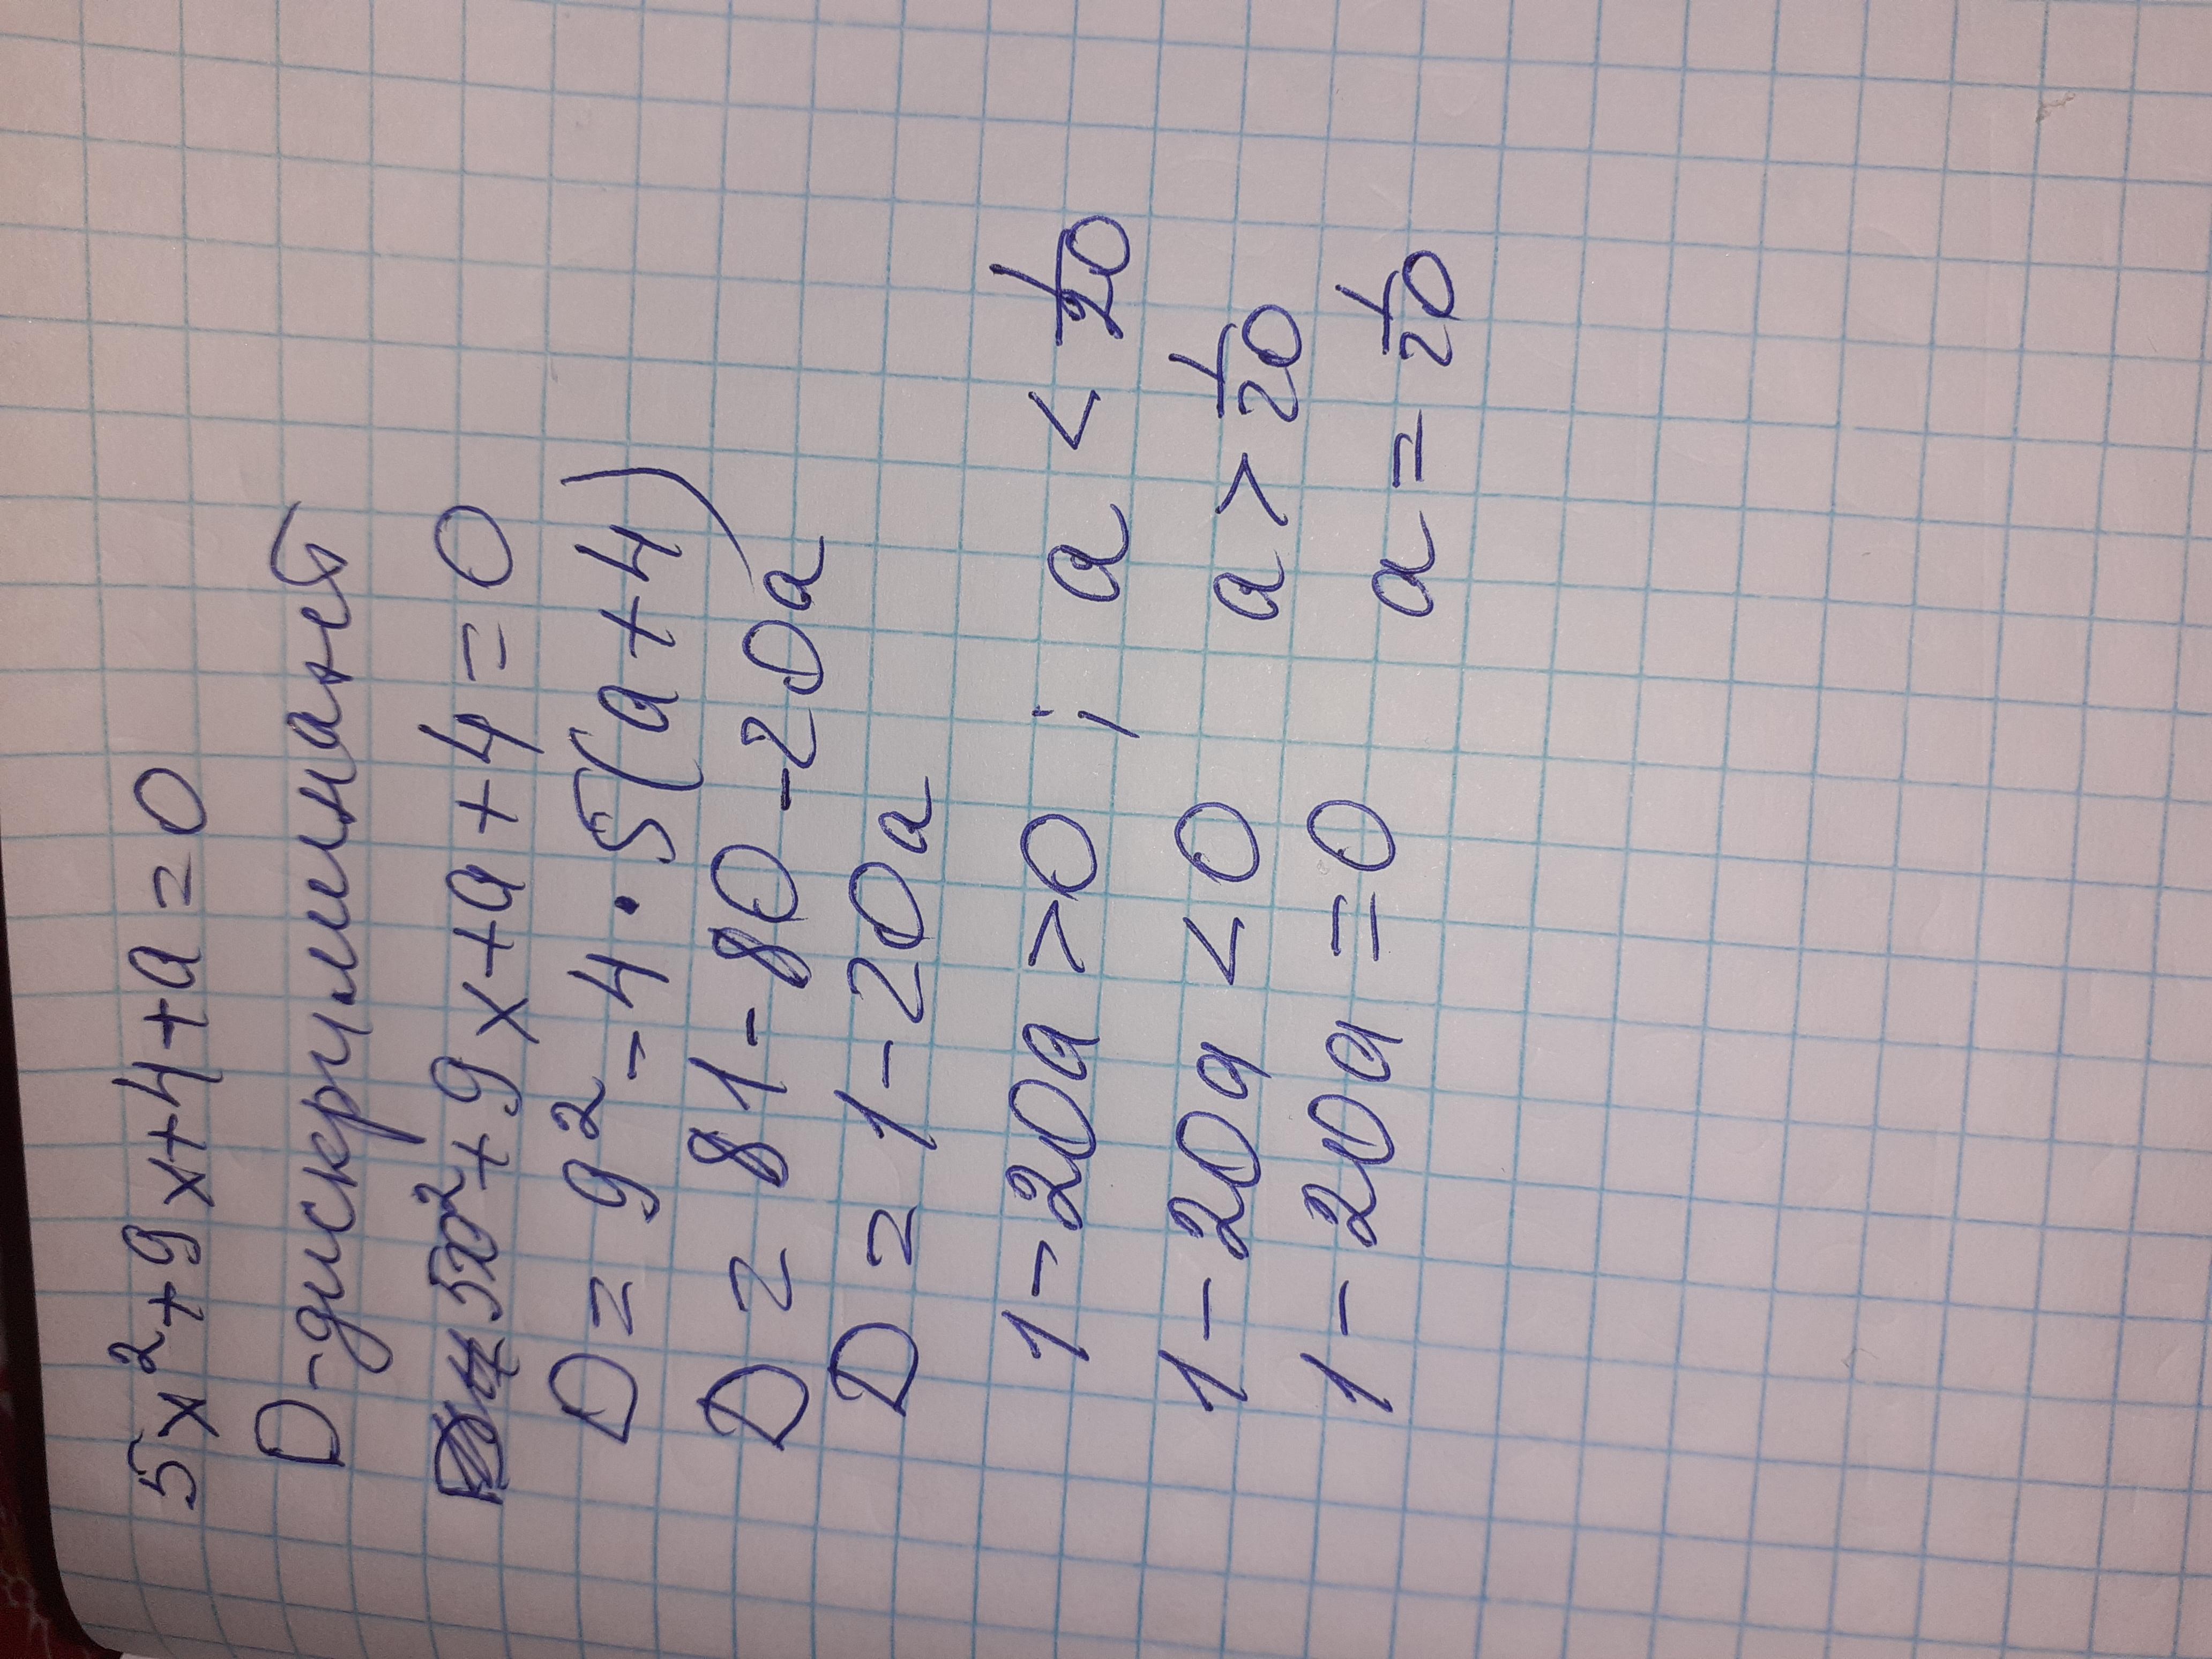 5x²+9x+4+a=0
D-дискриминант
5x²+9x+a+4=0
D=9²-4·5(a+4)
D=81-80-20a
D=1-20a
1-20a>0 ; a<1/20
1-20a<0 a>1/20
1-20a=0 a=1/20